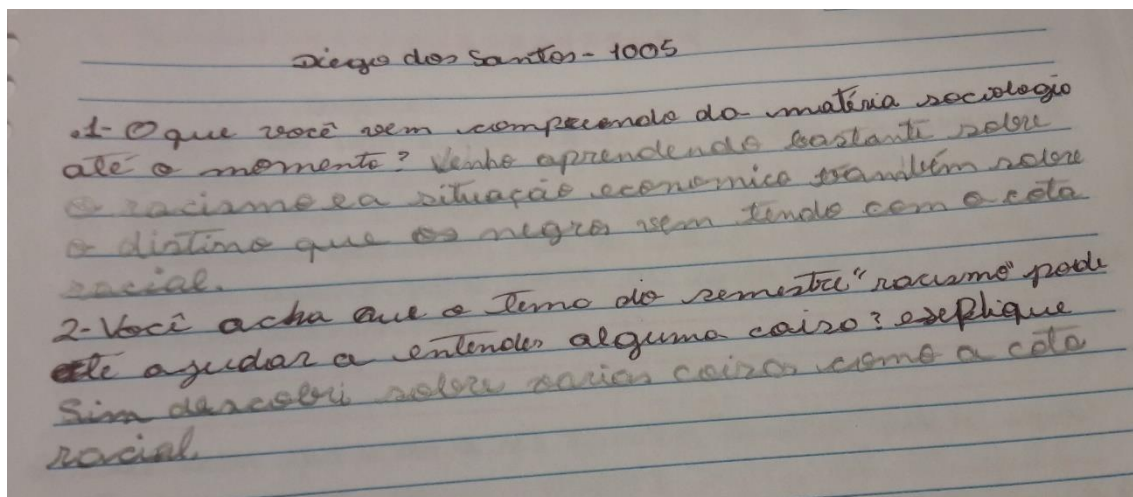 Diego dos Santos - 1005
1- O que você vem compreendo da matéria sociologia
até o momento? Venho aprendendo bastante sobre
o racismo e a situação economica também sobre
o distino que os negros vem tendo com a cota
racial.
2- Você acha que o Tema do semestre "racismo" pode
te ajudar a entender alguma coisa? explique
Sim descobri sobre varias coisas como a cota
racial.